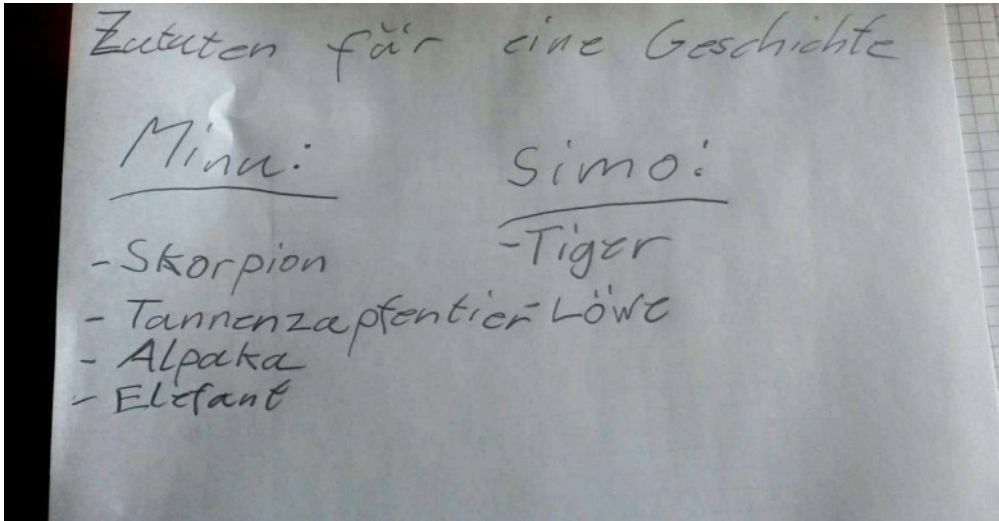 Zutaten für eine Geschichte
Minu:
- Skorpion
- Tannenzapfentier
- Alpaka
- Elefant
Simo:
-Tiger
-Löwe